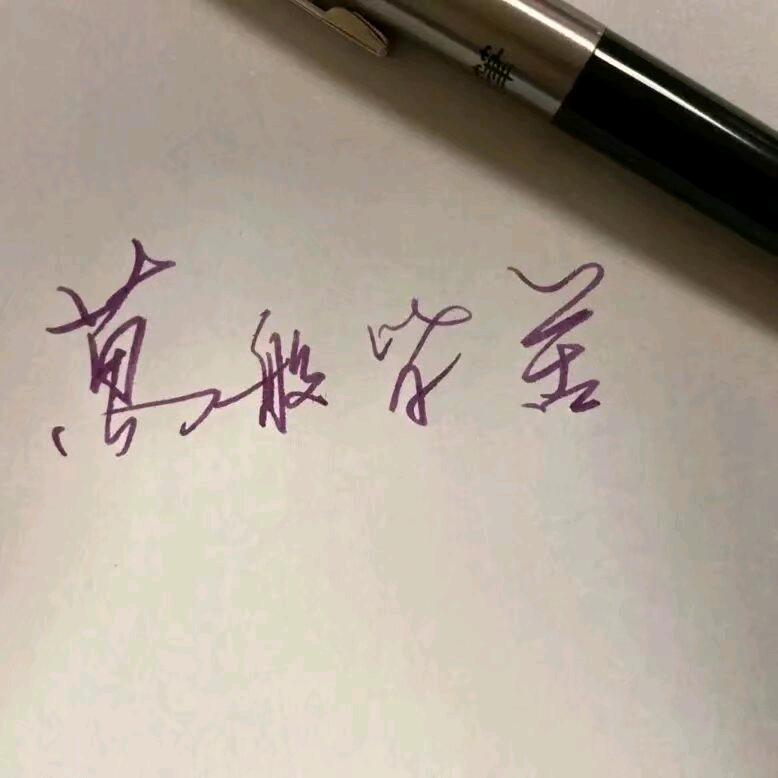 萬般皆苦